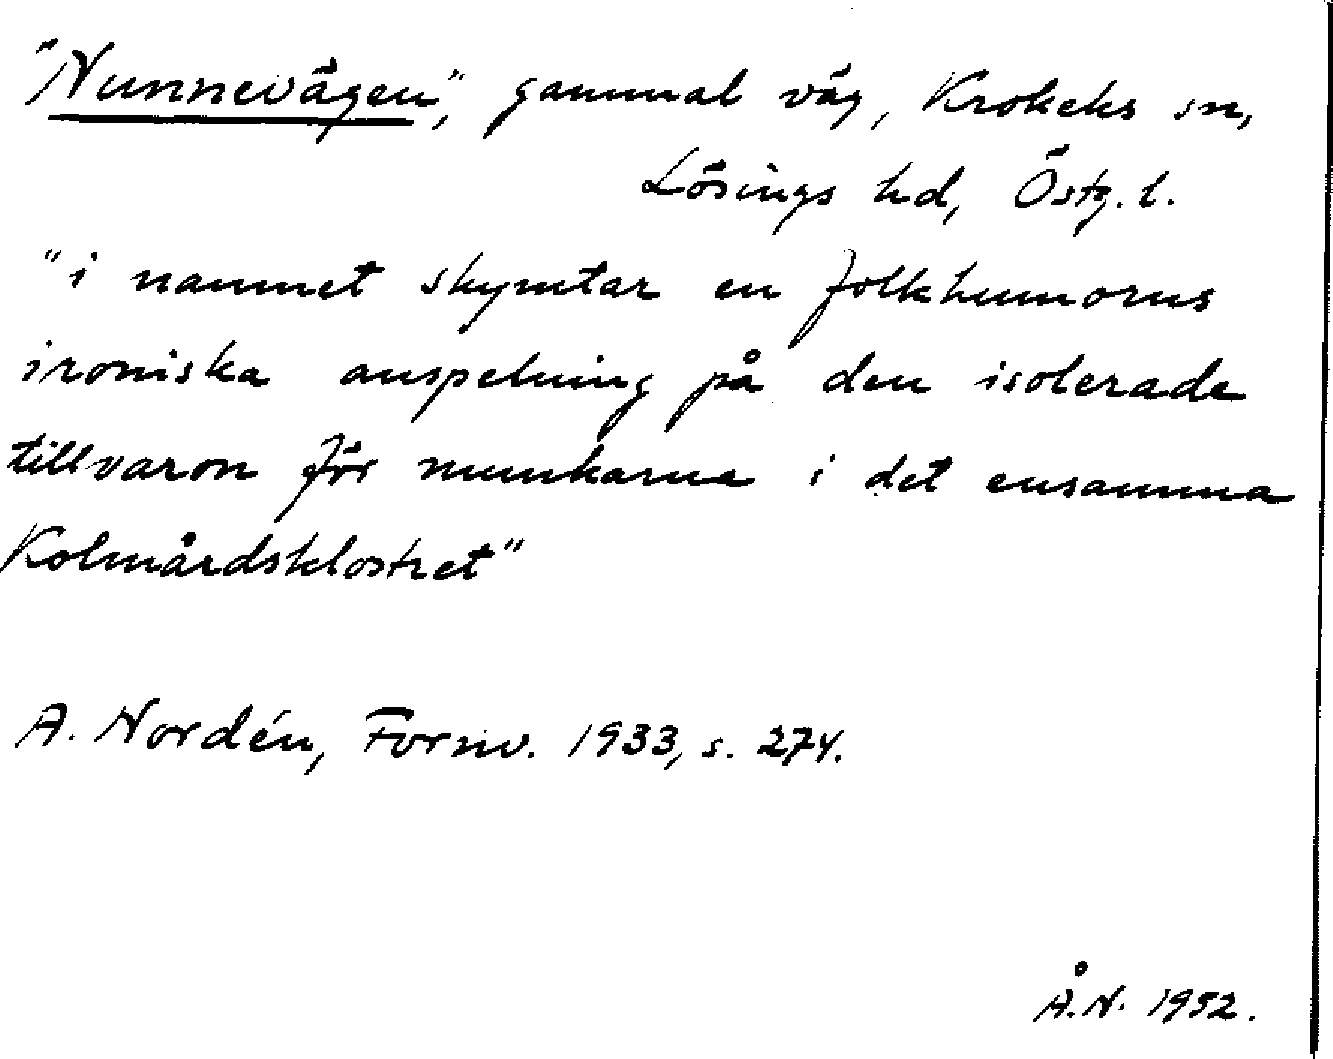 "Nunnevägen", gammal väg, Krokeks sn,
Lösings hd, Östg. l.
"i namnet skymtar en folkhumorns
ironiska anspelning på den isolerade
tillvaron för munkarne i det ensamma
Kolmårdsklostret"
A. Nordén, Fornv. 1933, s. 274.
Å.N. 1952.